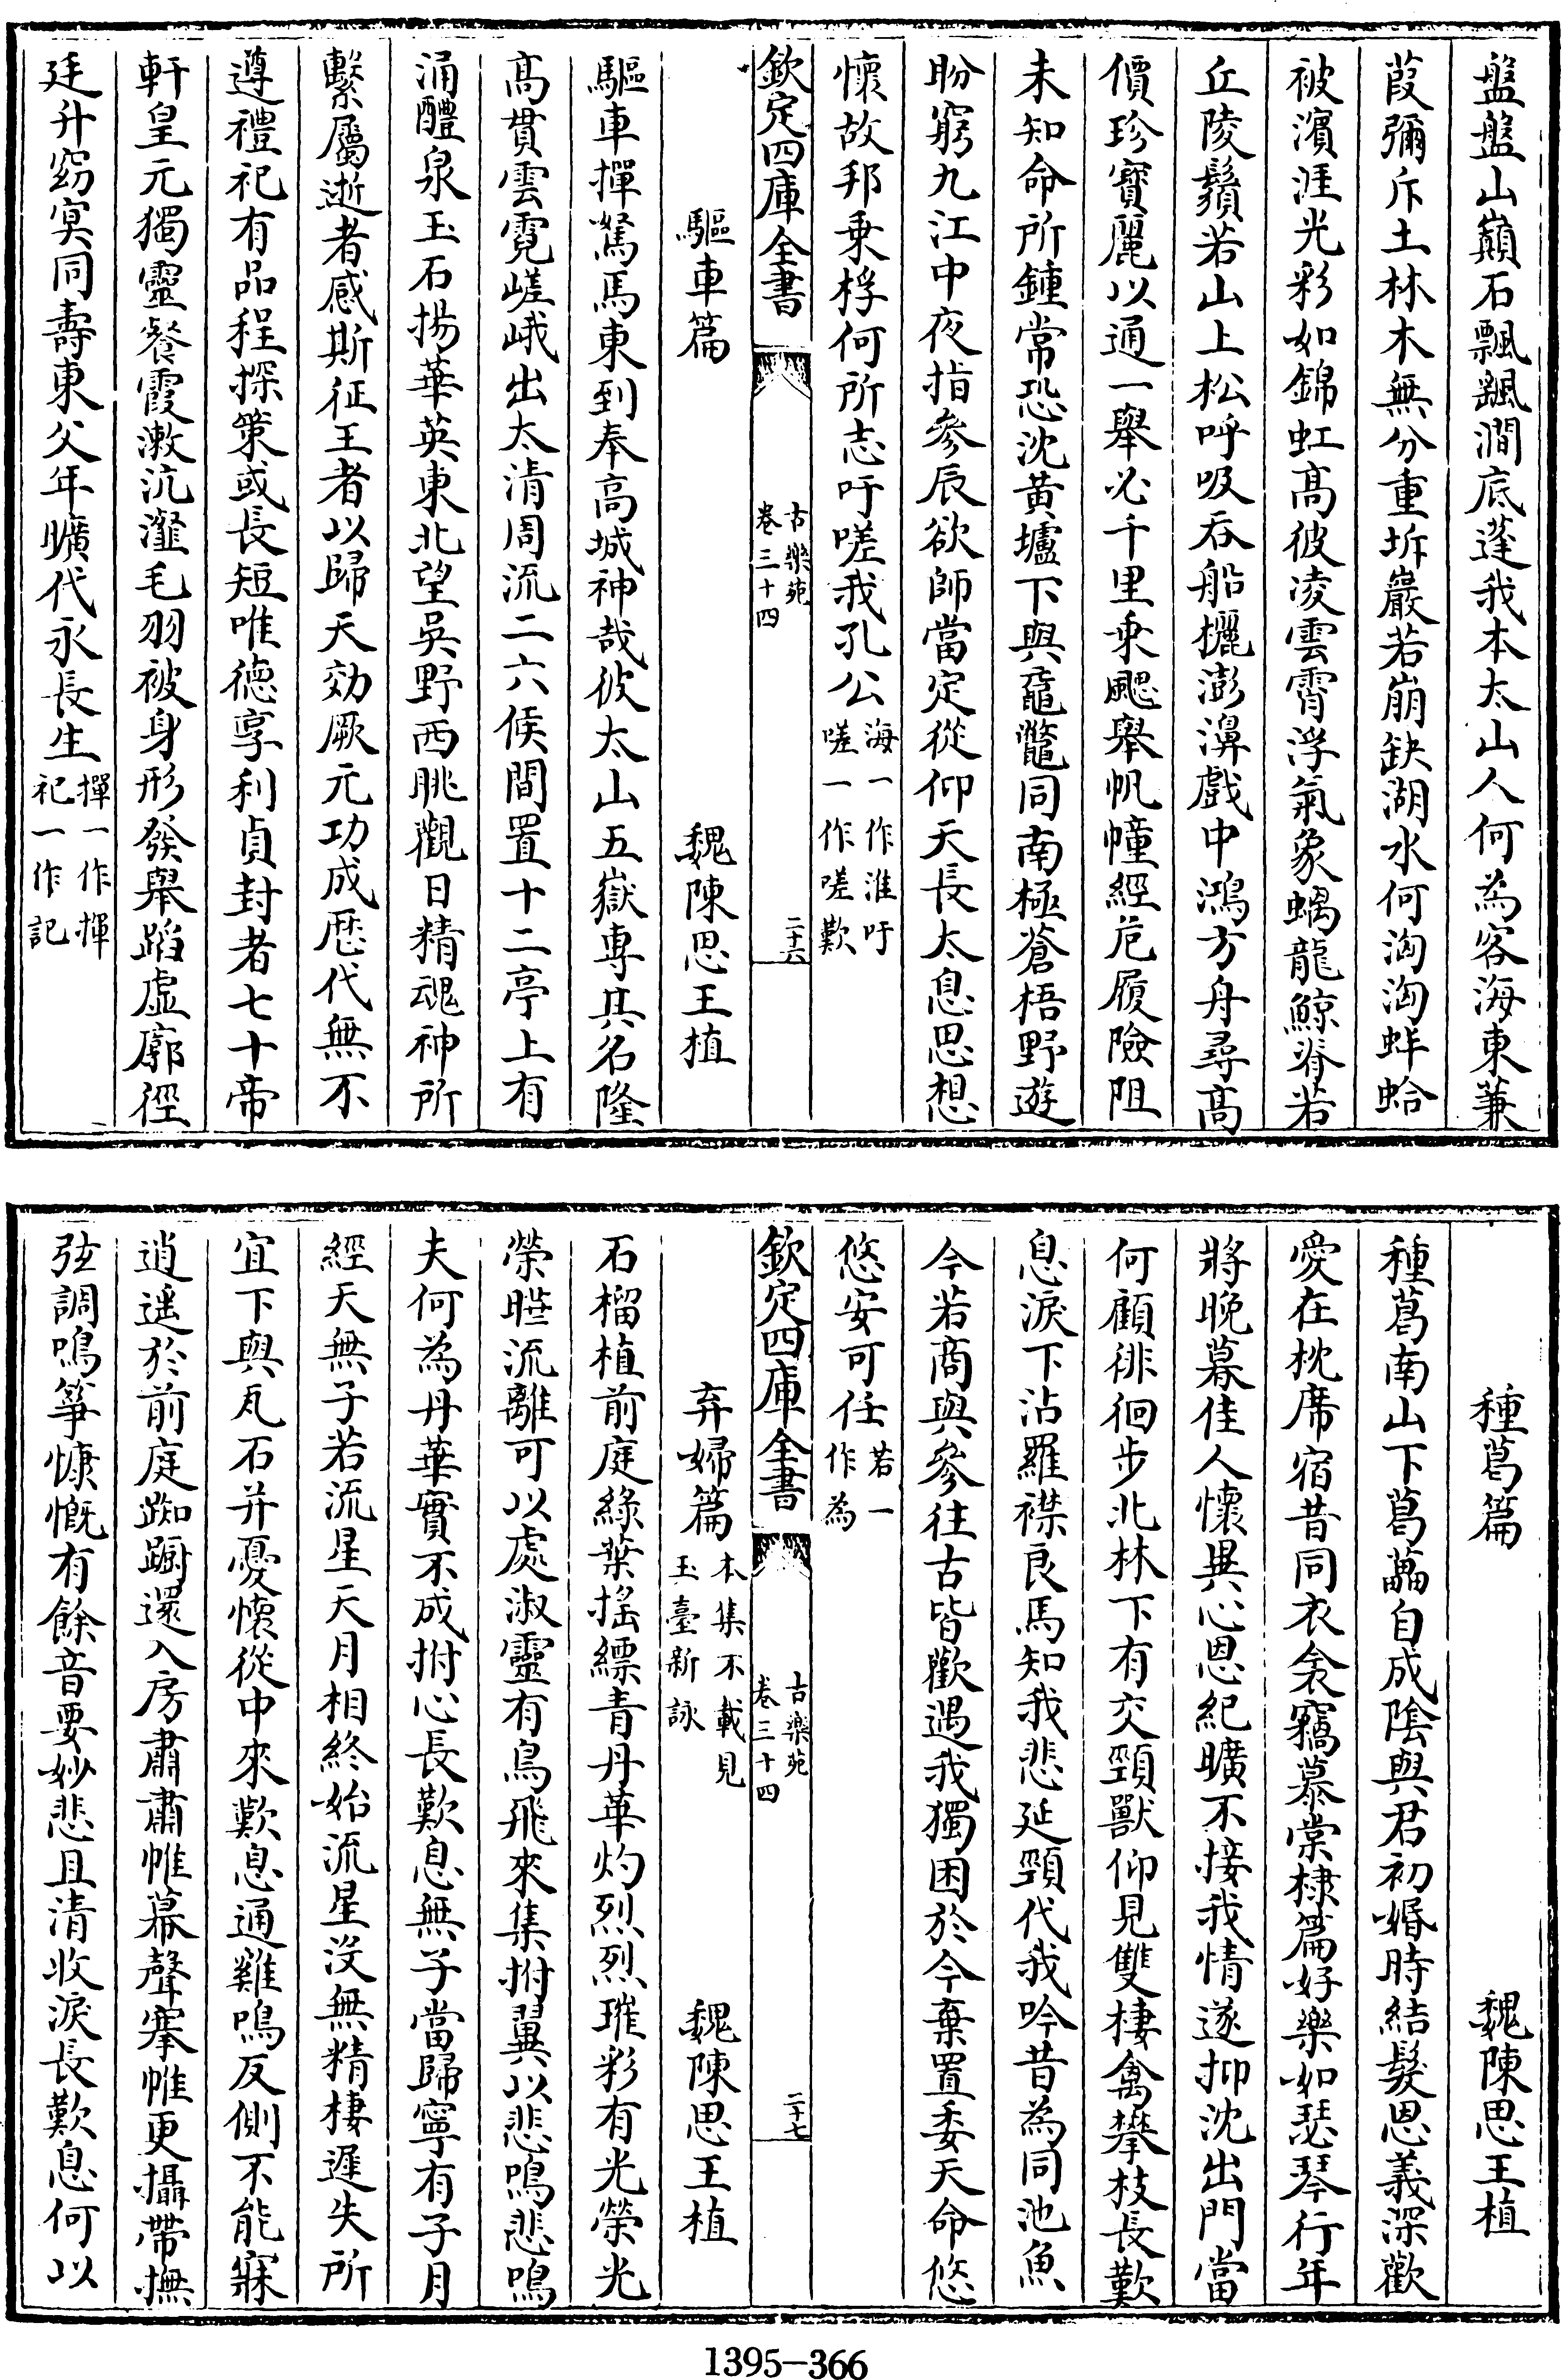 盤盤山巔石飄飖澗底蓬我本太山人何為客海東蒹
葭彌斥土林木無分重坼巖若崩缺湖水何洶洶蚌蛤
被濱涯光彩如錦虹髙彼凌雲霄浮氣象螭龍鯨脊若
丘陵鬚若山上松呼吸吞船欐澎濞戲中鴻方舟尋髙
價珍寶麗以通一舉必千里乘颸舉帆幢經危履險阻
未知命所鍾常恐沈黄壚下與黿鼈同南極蒼梧野遊
盼窮九江中夜指參辰欲師當定從仰天長太息思想
懷故邦乘桴何所志吁嗟我孔公海一作淮吁嗟一作嗟歎
欽定四庫全書
古樂苑
卷三十四
二十六
驅車篇 魏陳思王植
驅車撣駑馬東到奉髙城神哉彼太山五嶽專其名隆
髙貫雲霓嵯峨出太清周流二六候間置十二亭上有
涌醴泉玉石揚華英東北望吳野西眺觀日精魂神所
繫屬逝者感斯征王者以歸天効厥元功成歴代無不
遵禮祀有品程探策或長短唯德享利貞封者七十帝
軒皇元獨靈餐霞漱沆瀣毛羽被身形發舉蹈虚廓徑
廷升窈冥同壽東父年曠代永長生撣一作揮祀一作記
種葛篇 魏陳思王植
種葛南山下葛藟自成陰與君初婚時結髮恩義深歡
愛在枕席宿昔同衣衾竊慕棠棣篇好樂如瑟琴行年
將晩暮佳人懷異心恩紀曠不接我情遂抑沈出門當
何顧徘徊步北林下有交頸獸仰見雙棲禽攀枝長歎
息淚下沾羅襟良馬知我悲延頸代我吟昔為同池魚
今若商與參往古皆歡遇我獨困於今棄置委天命悠
悠安可任若一作為
欽定四庫全書
古樂苑
卷三十四
二十七
弃婦篇本集不載見玉臺新詠 魏陳思王植
石榴植前庭綠葉揺縹青丹華灼烈烈璀彩有光榮光
榮曄流離可以處淑靈有鳥飛來集拊翼以悲鳴悲鳴
夫何為丹華實不成拊心長歎息無子當歸寧有子月
經天無子若流星天月相終始流星沒無精棲遲失所
宜下與瓦石并憂懷從中來歎息通雞鳴反側不能寐
逍遥於前庭踟蹰還入房肅肅帷幕聲搴帷更攝帶撫
弦調鳴箏慷慨有餘音要妙悲且清收淚長歎息何以
1395—366